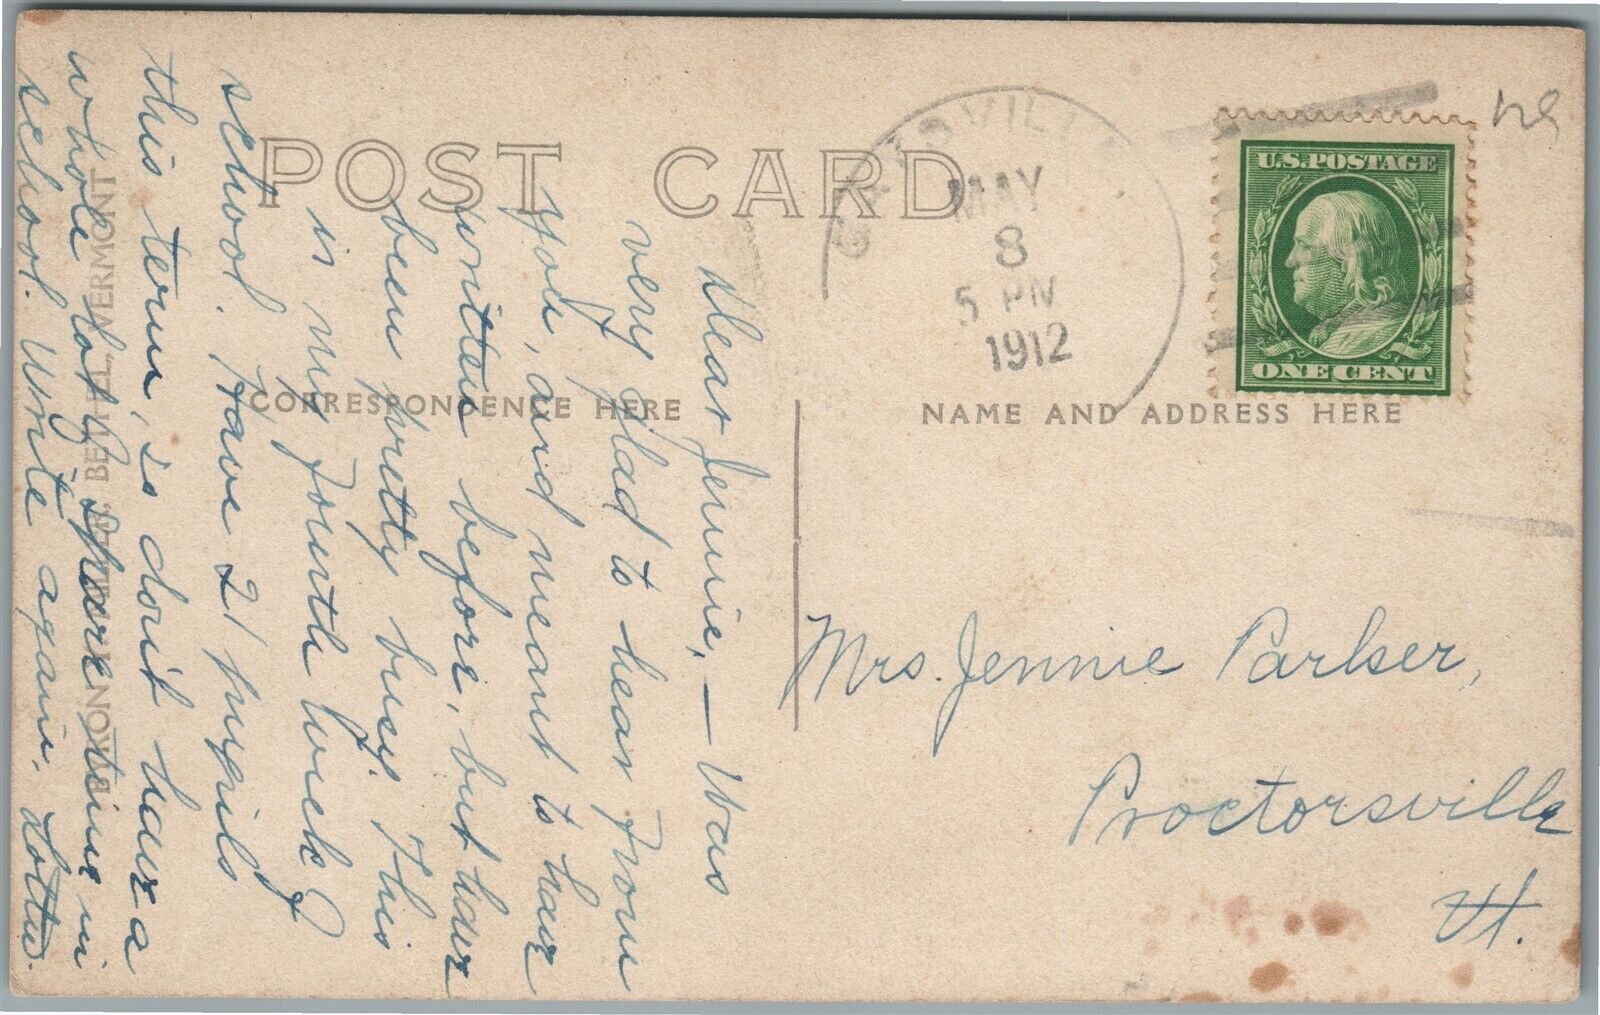 POST CARD
CORRESPONDENCE HERE
NAME AND ADDRESS HERE
MAY
8
5 PM
1912
U.S. POSTAGE
ONE CENT
Dear Jennie, — Was
very glad to hear from
you, and meant to have
written before, but have
been pretty busy. This
is my fourth week of
school. Have 21 pupils
this term, so don't have a
whole lot of spare time in
school. Write again. Lottie.
Mrs. Jennie Parker,
Proctorsville
Vt.
BETHEL, VERMONT